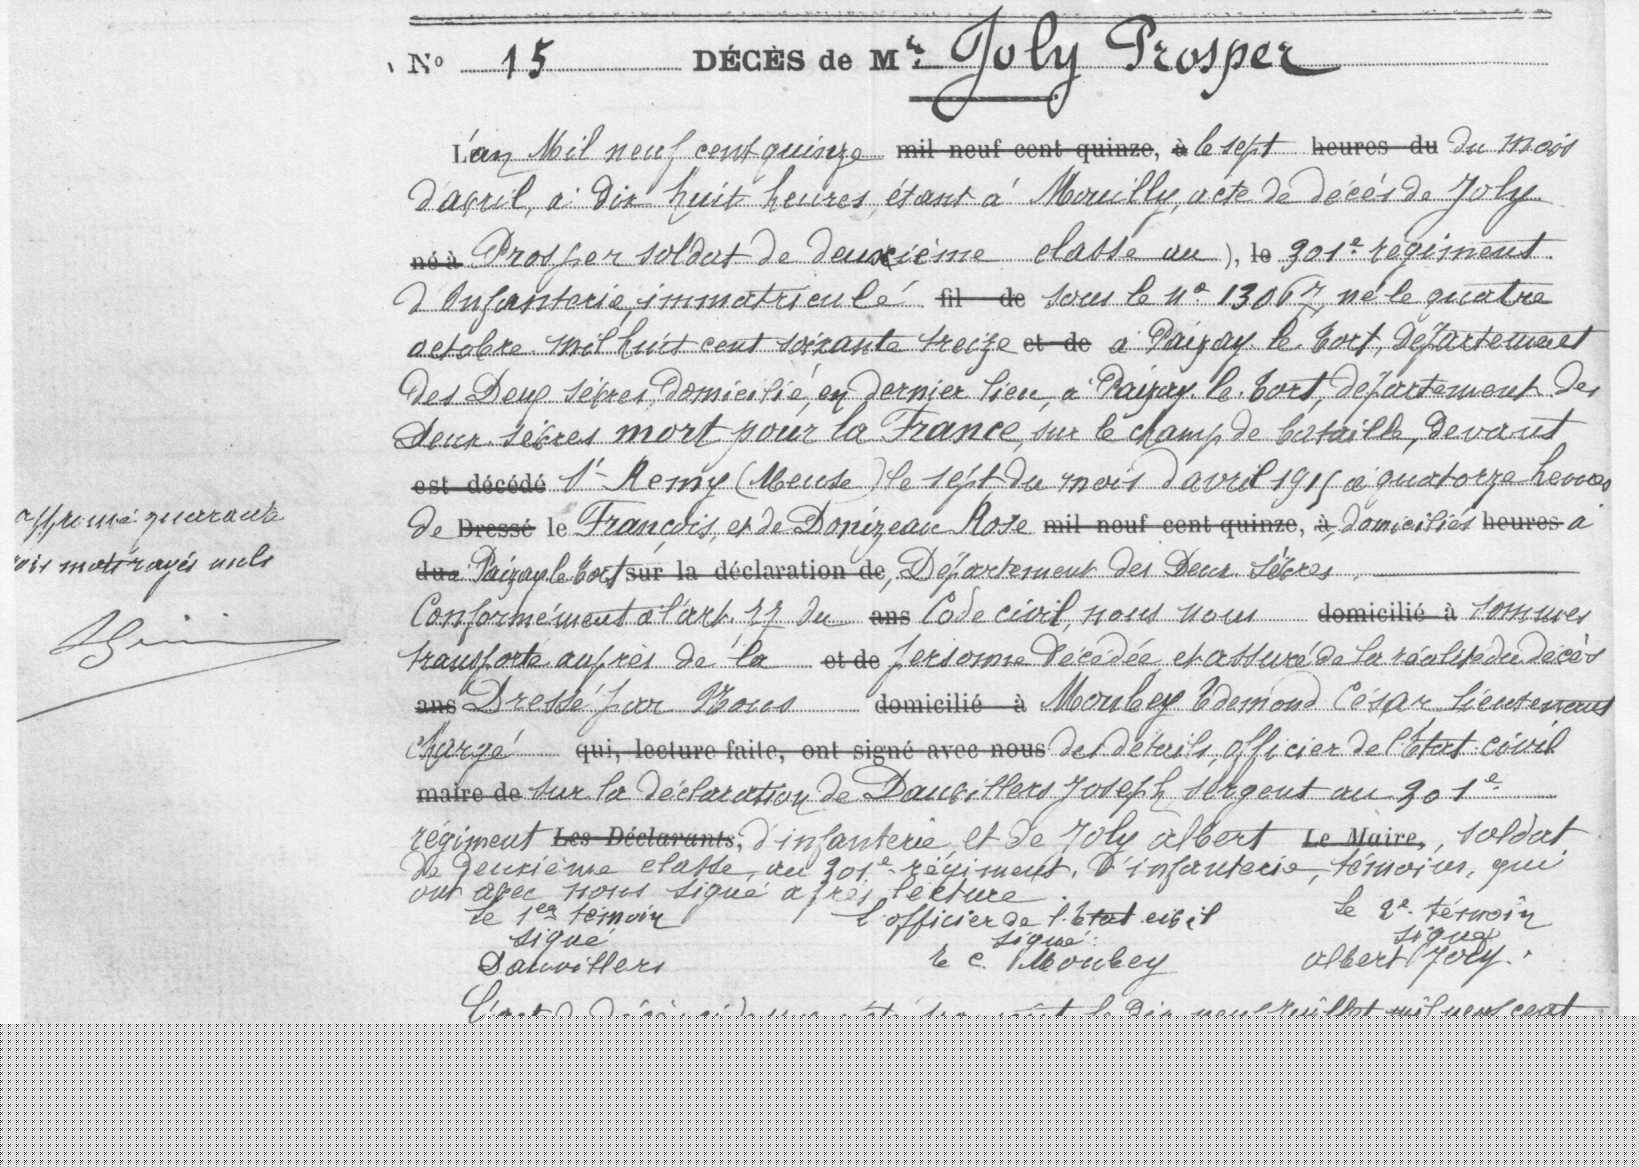 No 15 DÉCÈS de Mr. Joly Prosper
L'an Mil neuf cent quinze mil neuf cent quinze, à le sept heures du du mois
d'avril, à dix huit heures, étant à Mouilly, acte de décès de Joly
né à Prosper soldat de deuxième classe au ), le 301e régiment
d'Infanterie, immatriculé fil de sous le no 13067, né le quatre
octobre mil huit cent soixante treize et de à Paizay le Tort, département
des Deux Sèvres, domicilié, en dernier lieu, à Paizay le Tort, département des
Deux Sèvres mort pour la France, sur le champ de bataille, devant
est décédé St Remy (Meuse) le sept du mois d'avril 1915 à quatorze heures
de Dressé le François, et de Donizeau Rose mil neuf cent quinze, à domiciliés heures à
du Paizay le Tort sur la déclaration de, Département des Deux Sèvres
Conformément à l'art. 77 du ans Code civil, nous nous domicilié à sommes
transporté auprès de la et de personne décédée et assuré de la réalité du décès
ans Dressé par Nous domicilié à Moubey Edemond César Lieutenant
chargé qui, lecture faite, ont signé avec nous des détails, officier de l'État civil
maire de sur la déclaration de Dauvillers Joseph, sergent au 301e
régiment Les Déclarants, d'infanterie et de Joly albert Le Maire, soldat
de deuxième classe, au 301e régiment, d'infanterie, témoins, qui
ont avec nous signé après lecture.
Le 1er témoin L'officier de l'Etat civil Le 2e témoin
signé signé signé
Dauvillers E C. Moubey albert Joly.
L'acte de décès ci-dessus a été transcrit le dix neuf Juillet mil neuf cent
approuvé quarante
trois mots rayés nuls